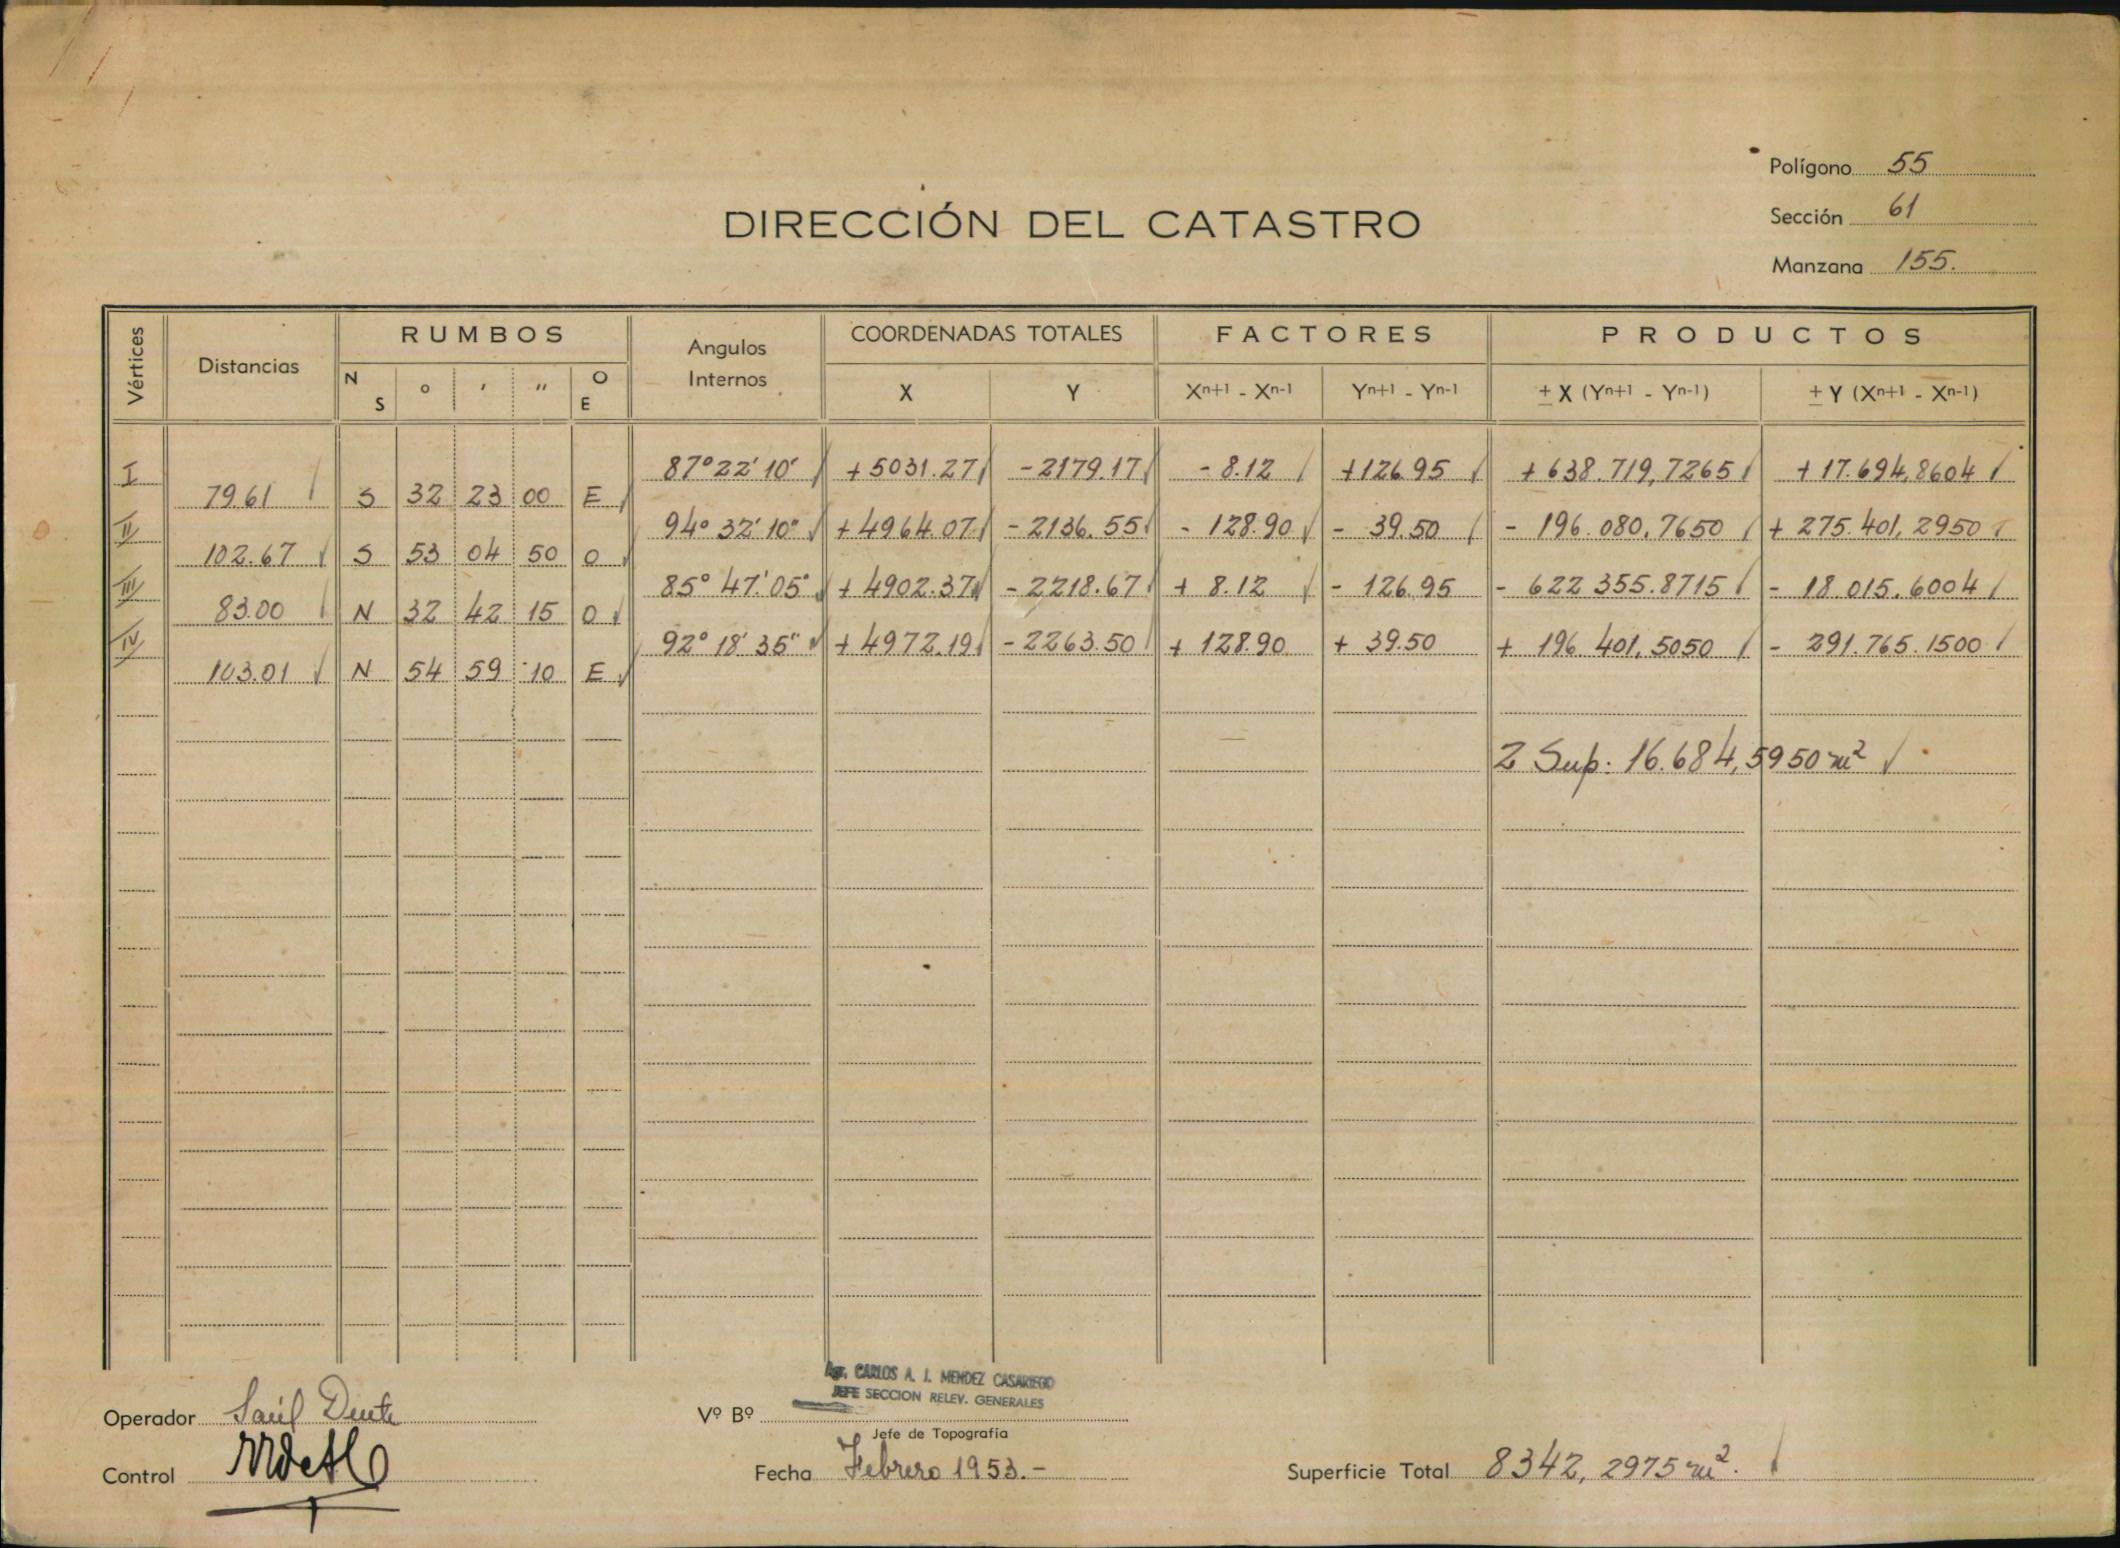 Polígono 55
Sección 61
Manzana 155.
DIRECCIÓN DEL CATASTRO
Vértices Distancias RUMBOS Angulos Internos COORDENADAS TOTALES FACTORES PRODUCTOS
N S ° ' " O E X Y Xn+1 - Xn-1 Yn+1 - Yn-1 ± X (Yn+1 - Yn-1) ± Y (Xn+1 - Xn-1)
I 87°22'10' +5031.27 -2179.17 -8.12 +126.95 +638.719,7265 +17.694,8604
79.61 S 32 23 00 E
II 94° 32' 10" +4964.07 -2136.55 -128.90 -39.50 -196.080,7650 +275.401,2950
102.67 S 53 04 50 O
III 85° 47' 05" +4902.37 -2218.67 +8.12 -126.95 -622 355.8715 -18.015.6004
83.00 N 32 42 15 O
IV 92° 18' 35" +4972.19 -2263.50 +128.90 +39.50 +196 401,5050 -291.765.1500
103.01 N 54 59 10 E
2 Sup. 16.684,5950 m²
Agr. CARLOS A. J. MENDEZ CASARIEGO
JEFE SECCION RELEV. GENERALES
Operador Saúl
Vº Bº
Jefe de Topografía
Control
Fecha Febrero 1953.-
Superficie Total 8342,2975 m².